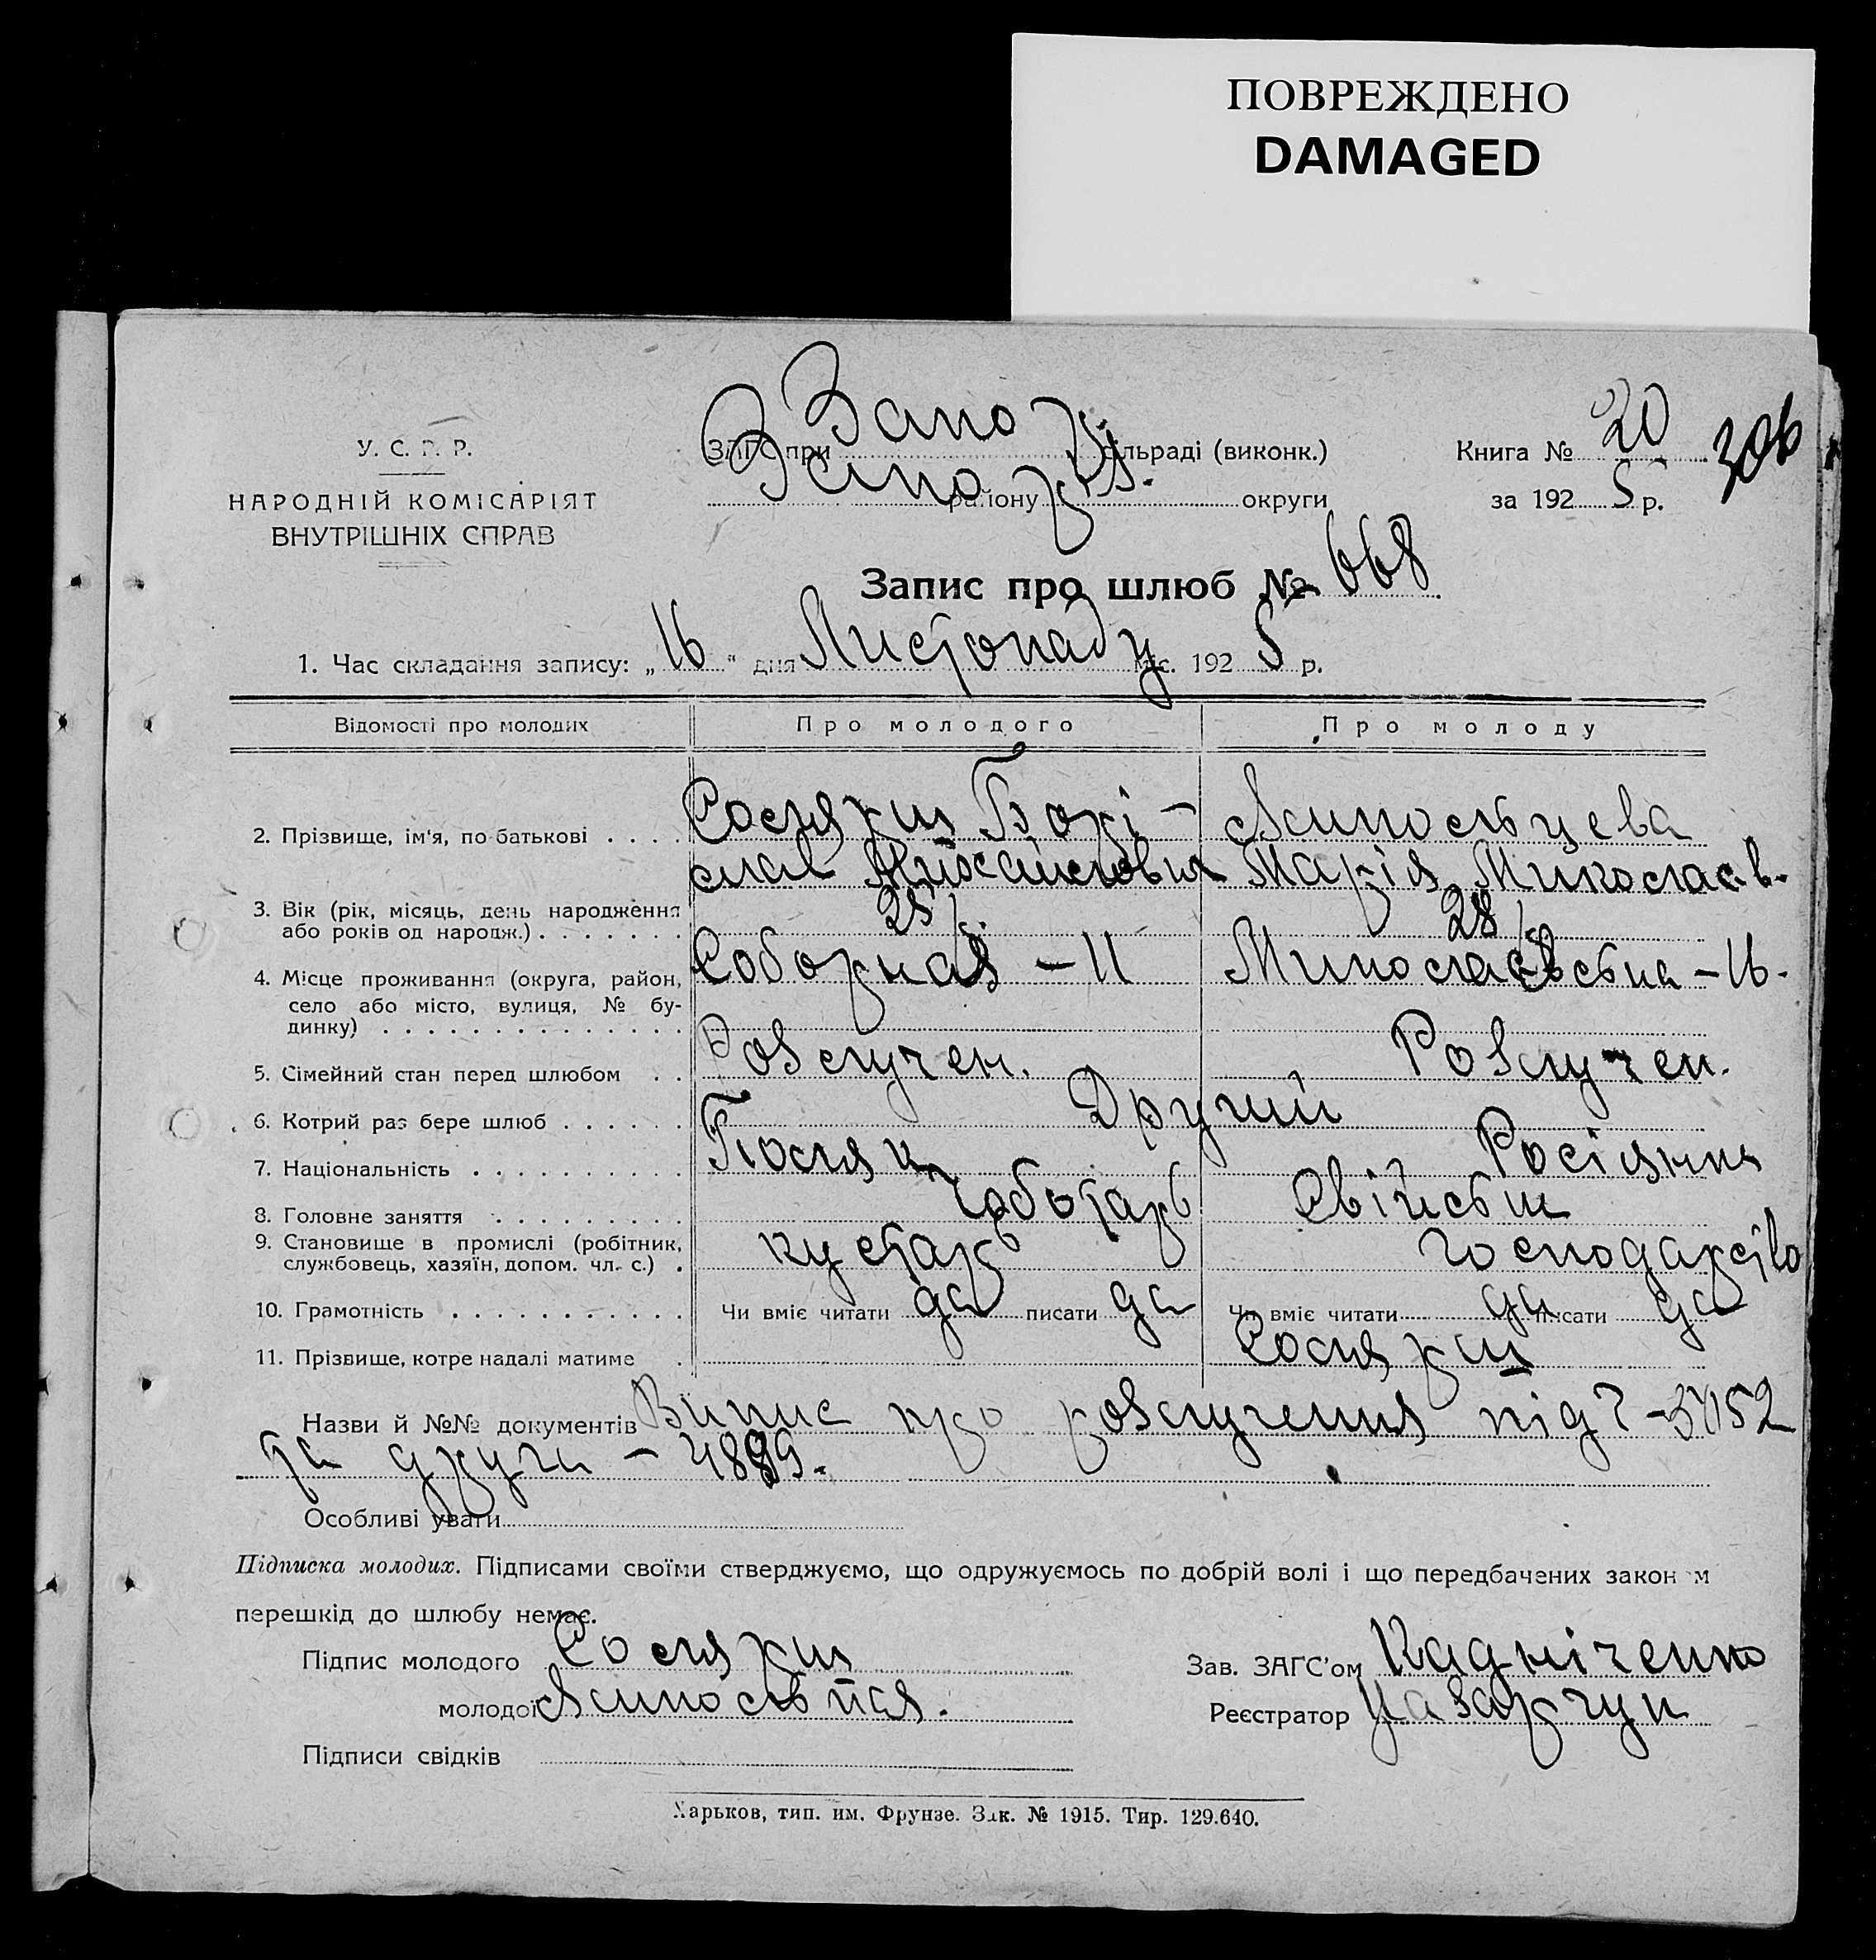 ПОВРЕЖДЕНО
DAMAGED
У. С. Р. Р.
НАРОДНІЙ КОМІСАРІЯТ
ВНУТРІШНІХ СПРАВ
ЗАГС при Запоріз. сільраді (виконк.)
Запоріз. району округи
Книга № 20
306
за 1925 р.
Запис про шлюб № 668
1. Час складання запису: „16“ дня Листопаду міс. 1925 р.
Відомості про молодих Про молодого Про молоду
2. Прізвище, ім'я, по-батькові . . . .
слав Михайлович Марія Миколаєв.
3. Вік (рік, місяць, день народження 25 р. 28 р.
або років од народж.) . . . . . . .
4. Місце проживання (округа, район, Соборная – 11 Миколаєвська – 16.
село або місто, вулиця, № бу-
динку) . . . . . . . . . . . . . .
5. Сімейний стан перед шлюбом . . Розлучен. Розлучен.
6. Котрий раз бере шлюб . . . . . . Другий
7. Національність . . . . . . . . . . Поляк Росіянка
8. Головне заняття . . . . . . . . . Чоботарь Свійськ
9. Становище в промислі (робітник, кустарь господарство
службовець, хазяїн, допом. чл. с.) .
10. Грамотність . . . . . . . . . . . Чи вміє читати да писати да Чи вміє читати да писати да
11. Прізвище, котре надалі матиме .
Назви й №№ документів Випис про розлучення під
да друга – 4899.
Особливі уваги
Підписка молодих. Підписами своїми стверджуємо, що одружуємось по добрій волі і що передбачених законом
перешкід до шлюбу немає.
Підпис молодого
Зав. ЗАГС'ом Кадніченко
молодої
Реєстратор Назарчук
Підписи свідків
Харьков, тип. им. Фрунзе. Зак. № 1915. Тир. 129.640.